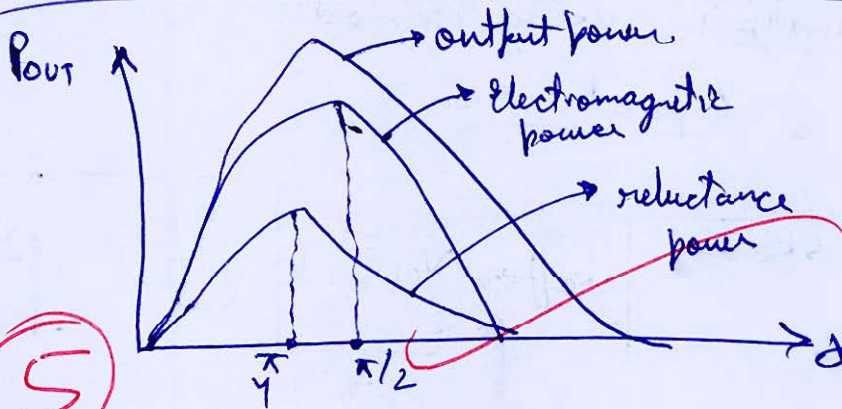 POUT
output power
Electromagnetic
power
reluctance
power
π/4
π/2
δ
5